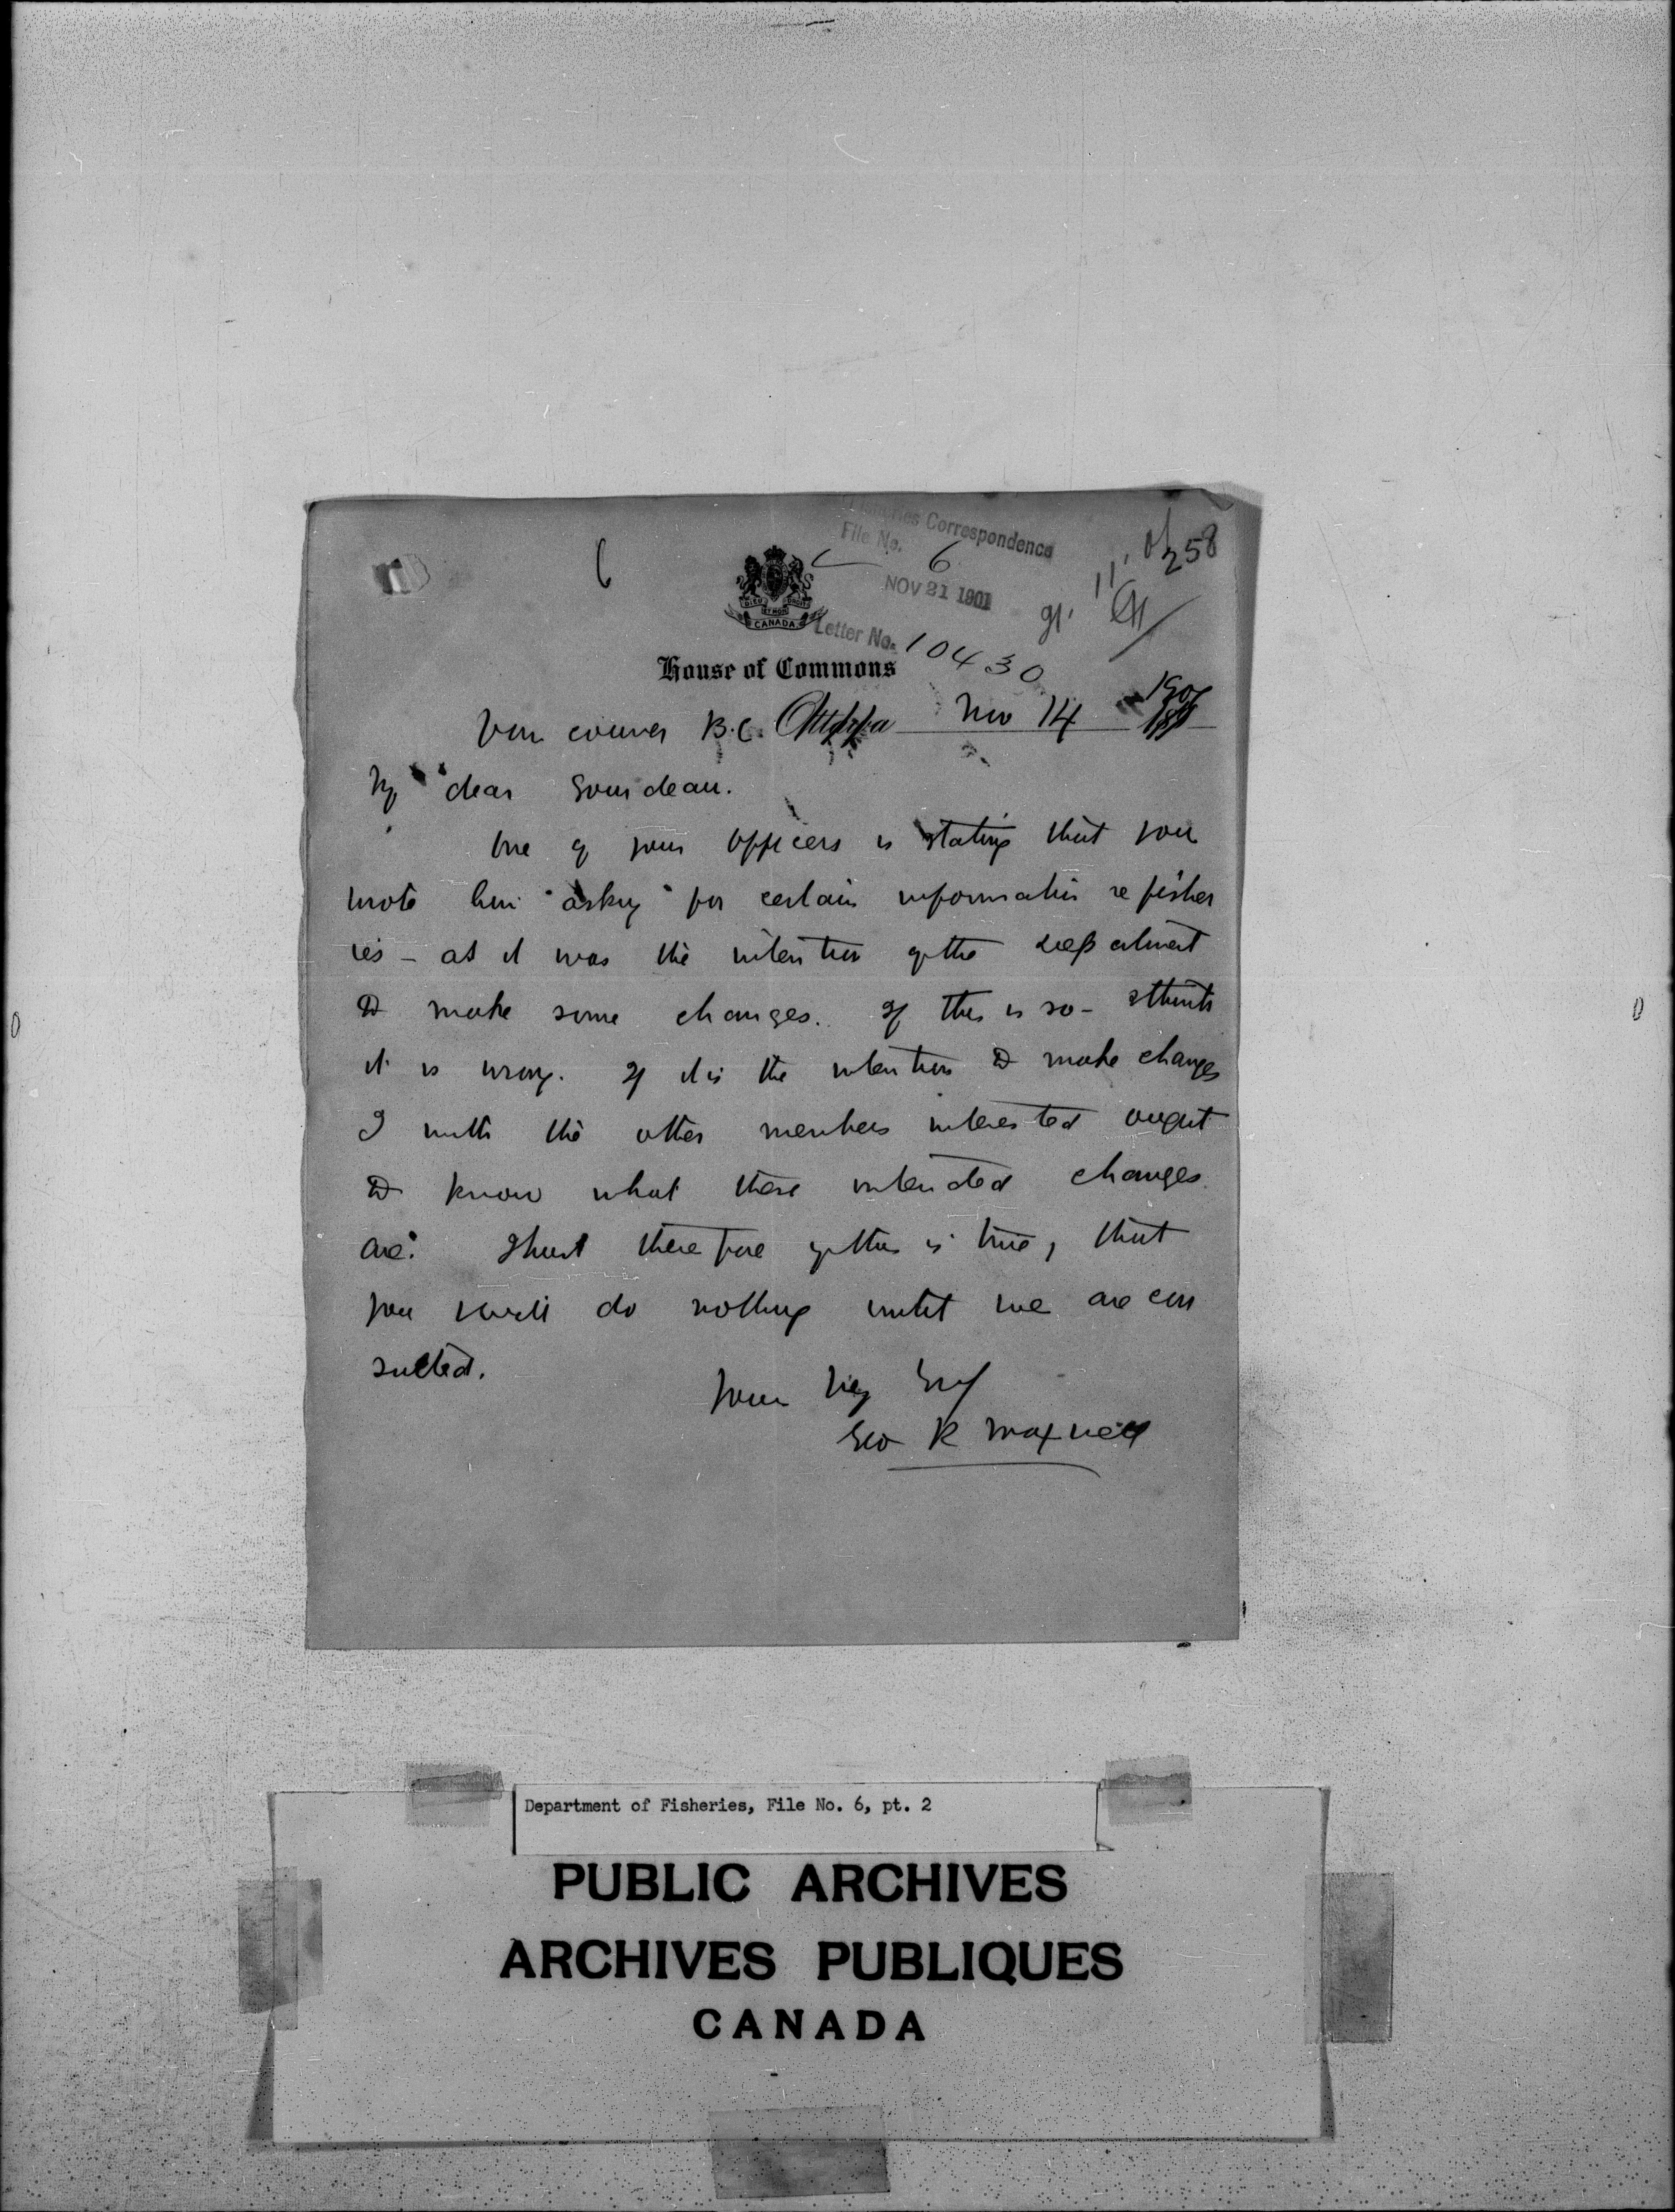 6
Fisheries Correspondence
File No. 6
NOV 21 1901
Letter No. 10430
258
DIEU ET MON DROIT
CANADA
House of Commons
Vancouver B.C. Ottawa Nov 14 1901
My dear Gourdeau.
One of your officers is stating that you
wrote him asking for certain information re fisher
ies - as it was the intention of the department
to make some changes. If this is so - I think
it is wrong. If it is the intention to make changes
I with the other members interested ought
to know what these intended changes
are. I trust therefore if this is true, that
you will do nothing until we are con
sulted.
Yours very truly
Geo R Maxwell
Department of Fisheries, File No. 6, pt. 2
PUBLIC ARCHIVES
ARCHIVES PUBLIQUES
CANADA